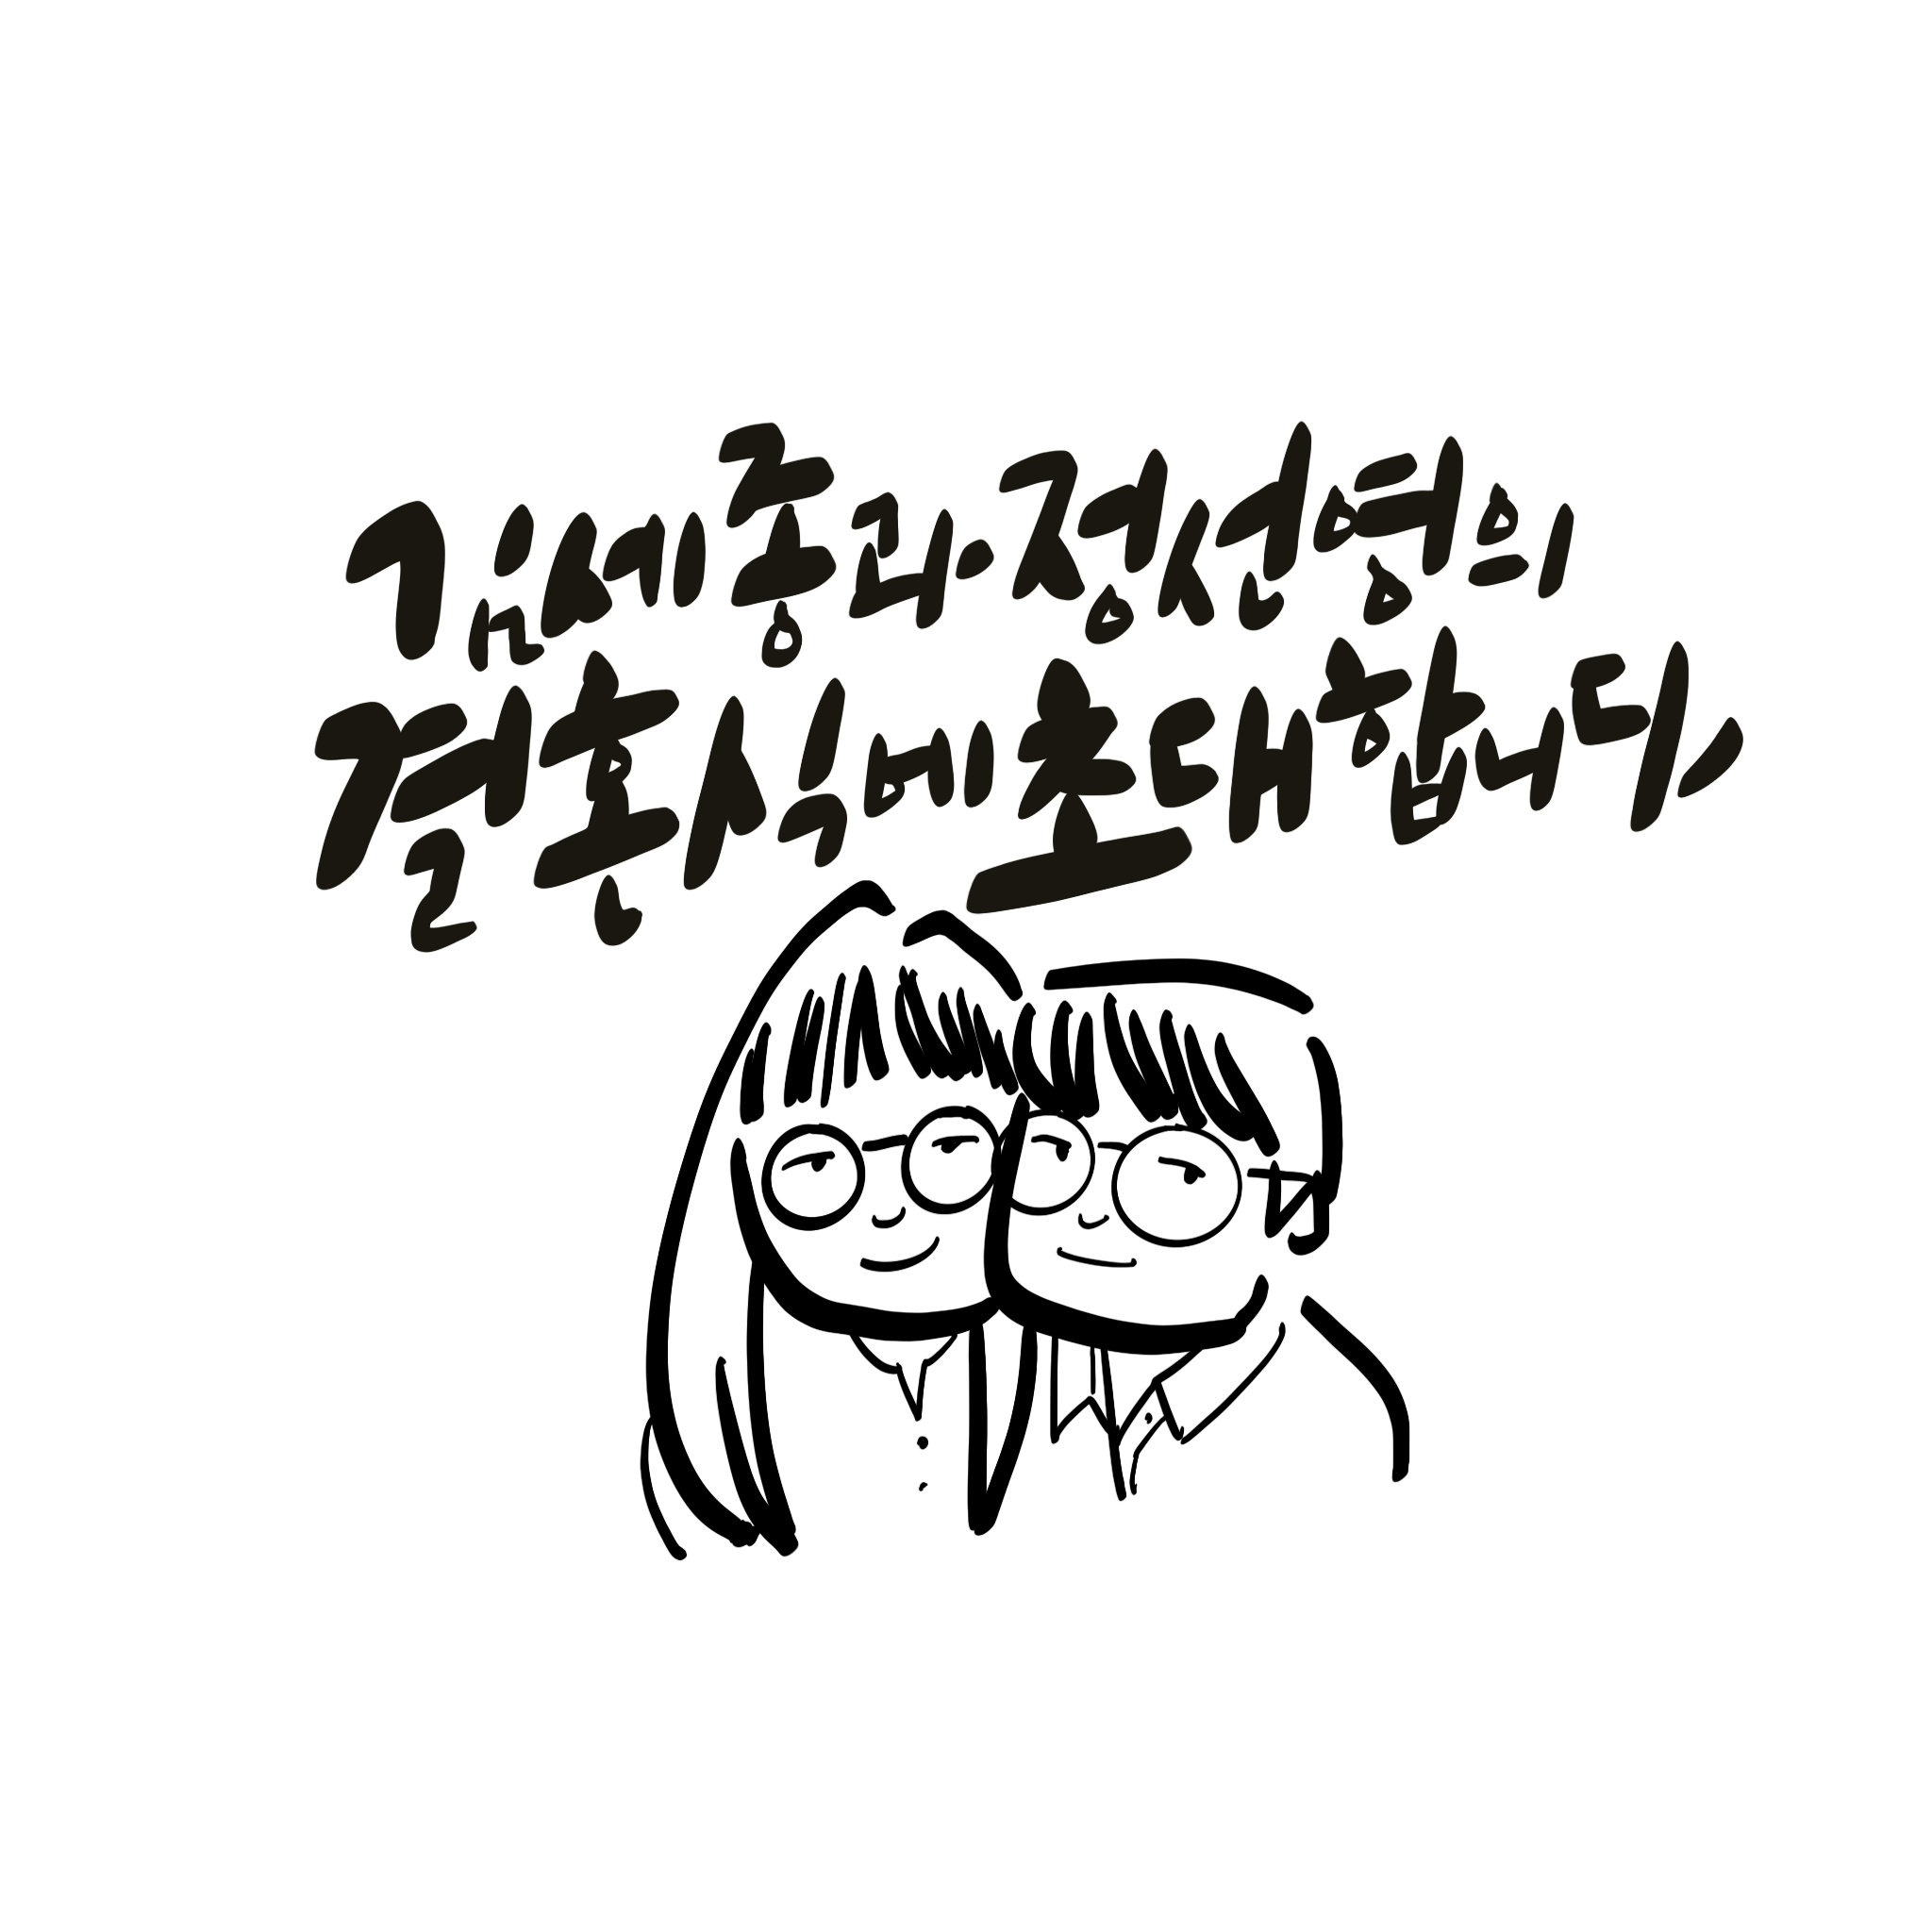 김세종과 정선영의
결혼식에 초대합니다